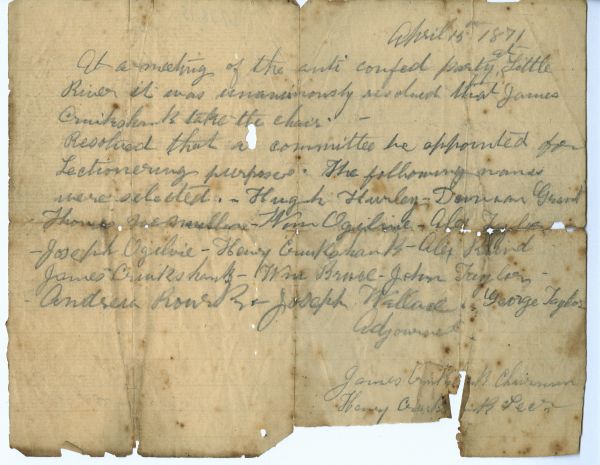 April 15th 1871
At a meeting of the anti confed party at Little
River it was unanimously resolved that James
Cruikshank take the chair. -
Resolved that a committee be appointed for
Lectionering purposes. The following names
were selected. - Hugh Hurley - Duncan Grant
Thomas McMullin - Wm Ogilvie - Alex Taylor
- Joseph Ogilvie - Henry Cruikshank - Alex
James Cruikshank - Wm Bruce - John Taylor -
- Andrew Joseph Wallace George Taylor
Adjourned
James Chairman
Henry Secr